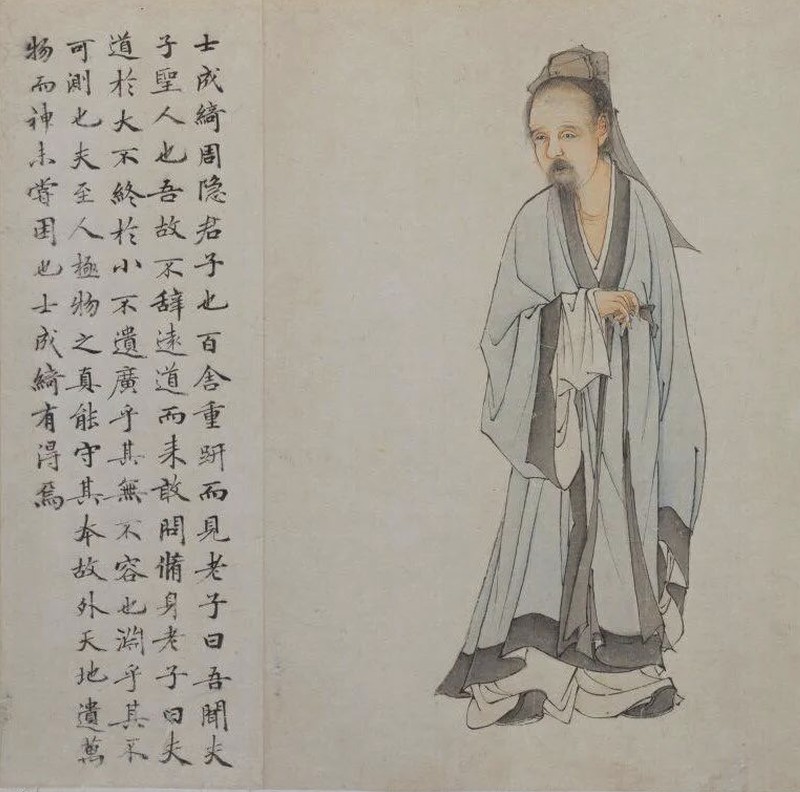 士成綺周隐君子也百舍重趼而見老子曰吾聞夫
子聖人也吾故不辞遠道而来敢問脩身老子曰夫
道於大不終於小不遺廣乎其無不容也淵乎其不
可測也夫至人極物之真能守其本故外天地遺萬
物而神未嘗困也士成綺有得焉